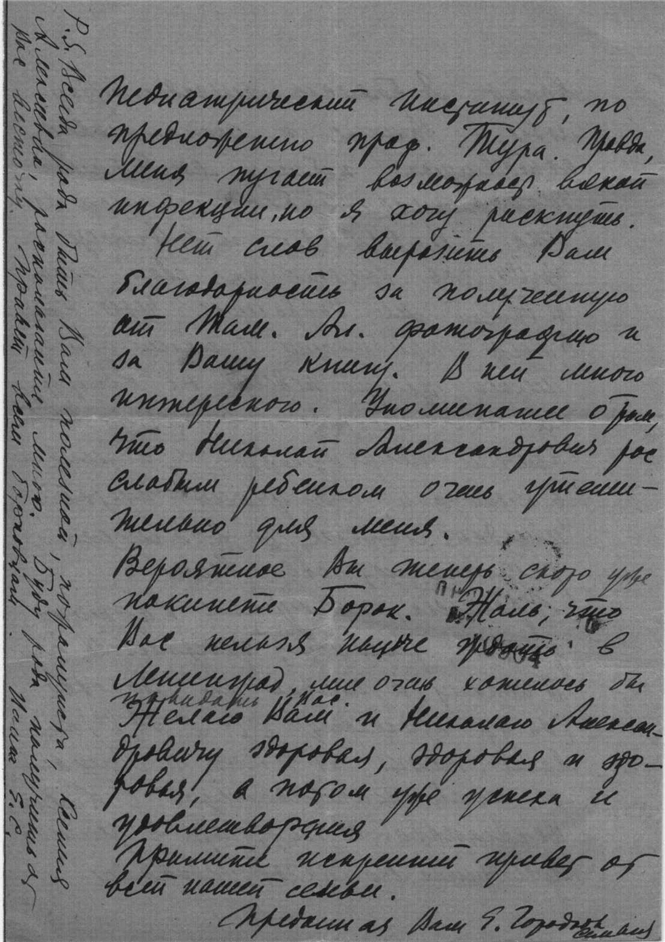 педиатрический институт, по
предложению проф. Тура. Правда,
меня пугает возможност. всякой
инфекции, но я хочу рискнуть.
Нет слов выразить Вам
благодарность за полученную
от Там. Ал. фотографию и
за Вашу книгу. В ней много
интересного. Упоминание о том,
что Николай Александрович рос
слабым ребенком очень утеши-
тельно для меня.
Вероятное Вы теперь скоро уже
покинете Борок. Жаль, что
Вас нельзя ждать в
Ленинград, мне очень хотелось бы
повидать Вас.
Желаю Вам и Николаю Алексан-
дровичу здоровья, здоровья и здо-
ровья, а потом уже успеха и
удовлетворения
Примите искренний привет от
всей нашей семьи.
Преданная Вам Е.
P.S. Всегда рада быть Вам полезной, пожалуйста, Ксения
Алексеевна, располагайте мною. Буду рада получить от
Вас весточку. Привет всем Борковцам.